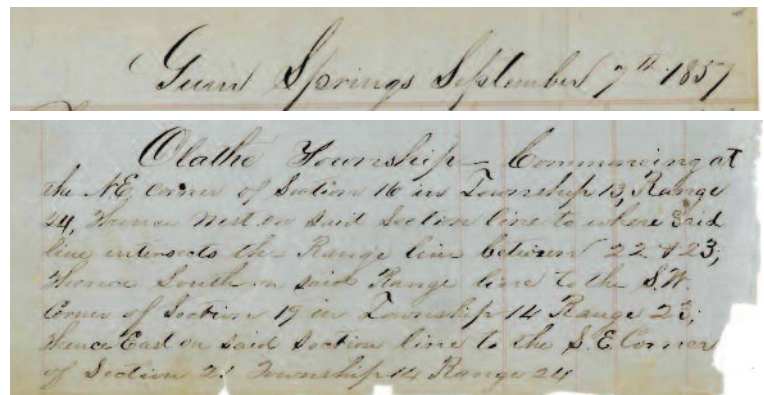 Gum Springs September 7th 1857
Olathe Township – Commencing at
the N.E. corner of Section 16 in Township 13, Range
24, Thence West on said Section line to where said
line intersects the Range line between 22 & 23;
Thence South on said Range line to the S.W.
Corner of Section 19 in Township 14 Range 23;
Thence East on said Section line to the S.E. Corner
of Section 21 Township 14 Range 24